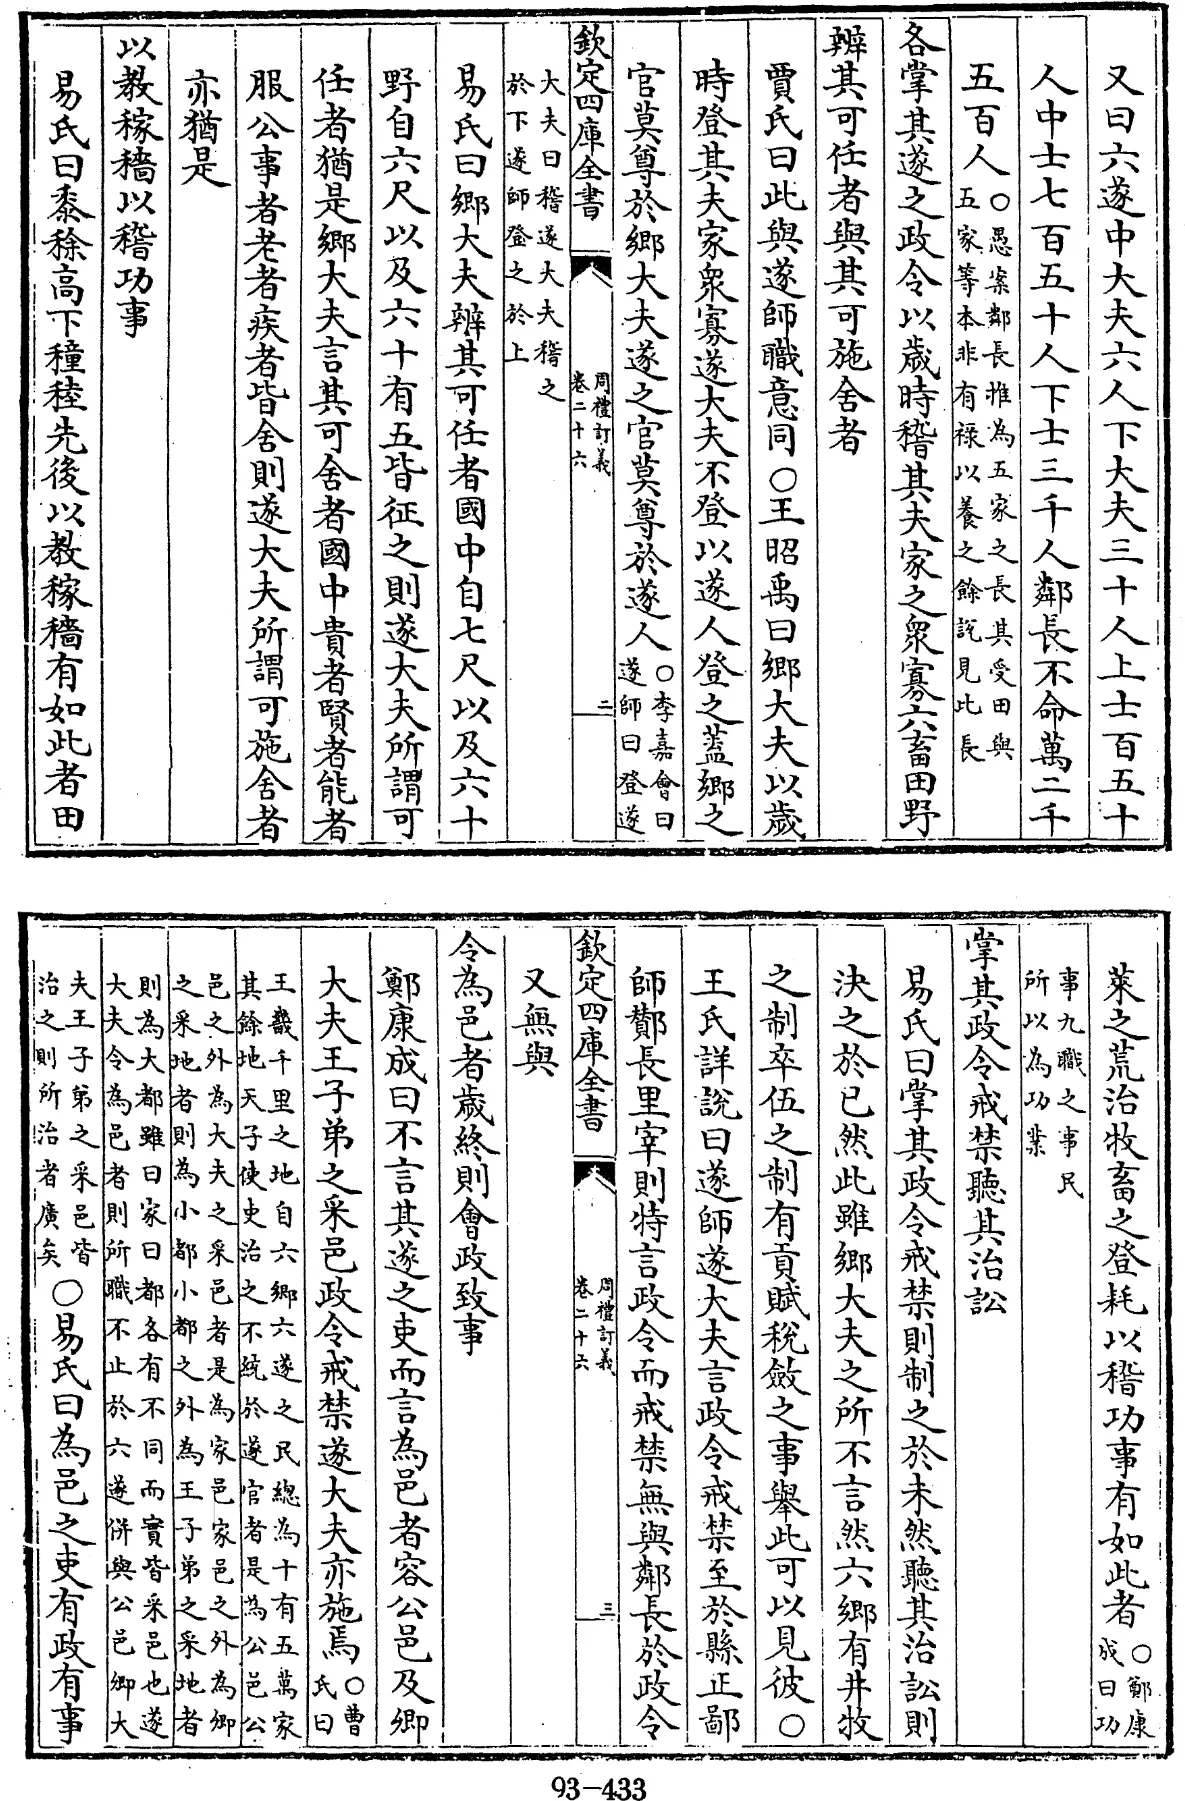 又曰六遂中大夫六人下大夫三十人上士百五十
人中士七百五十人下士三千人鄰長不命萬二千
五百人〇愚案鄰長推為五家之長其受田與
五家等本非有祿以養之餘說見比長
各掌其遂之政令以歲時稽其夫家之衆寡六畜田野
辨其可任者與其可施舍者
賈氏曰此與遂師職意同〇王昭禹曰鄉大夫以歲
時登其夫家衆寡遂大夫不登以遂人登之蓋鄉之
官莫尊於鄉大夫遂之官莫尊於遂人〇李嘉會曰
遂師曰登遂
欽定四庫全書
周禮訂義
卷二十六
二
大夫曰稽遂大夫稽之
於下遂師登之於上
易氏曰鄉大夫辨其可任者國中自七尺以及六十
野自六尺以及六十有五皆征之則遂大夫所謂可
任者猶是鄉大夫言其可舍者國中貴者賢者能者
服公事者老者疾者皆舍則遂大夫所謂可施舍者
亦猶是
以教稼穡以稽功事
易氏曰黍稌高下穜稑先後以教稼穡有如此者田
萊之荒治牧畜之登耗以稽功事有如此者〇鄭康
成曰功
事九職之事民
所以為功業
掌其政令戒禁聽其治訟
易氏曰掌其政令戒禁則制之於未然聽其治訟則
決之於已然此雖鄉大夫之所不言然六鄉有井牧
之制卒伍之制有貢賦稅斂之事舉此可以見彼〇
王氏詳說曰遂師遂大夫言政令戒禁至於縣正鄙
師酇長里宰則特言政令而戒禁無與鄰長於政令
欽定四庫全書
周禮訂義
卷二十六
三
又無與
令為邑者歲終則會政致事
鄭康成曰不言其遂之吏而言為邑者容公邑及卿
大夫王子弟之采邑政令戒禁遂大夫亦施焉〇曹
氏曰
王畿千里之地自六鄉六遂之民總為十有五萬家
其餘地天子使吏治之不統於遂官者是為公邑公
邑之外為大夫之采邑者是為家邑家邑之外為卿
之采地者則為小都小都之外為王子弟之采地者
則為大都雖曰家曰都各有不同而實皆采邑也遂
大夫令為邑者則所職不止於六遂併與公邑卿大
夫王子弟之采邑皆
治之則所治者廣矣〇易氏曰為邑之吏有政有事
93-433